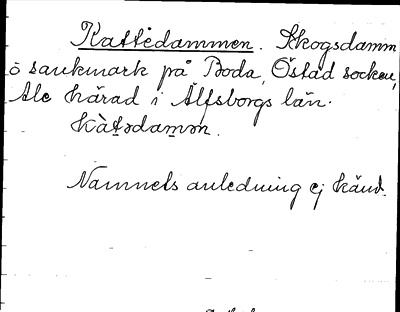 Kattedammen. Skogsdamm
o sankmark på Boda, Östad socken,
Ale härad i Älfsborgs län.
Kàtədamm.
Namnets anledning ej känd.